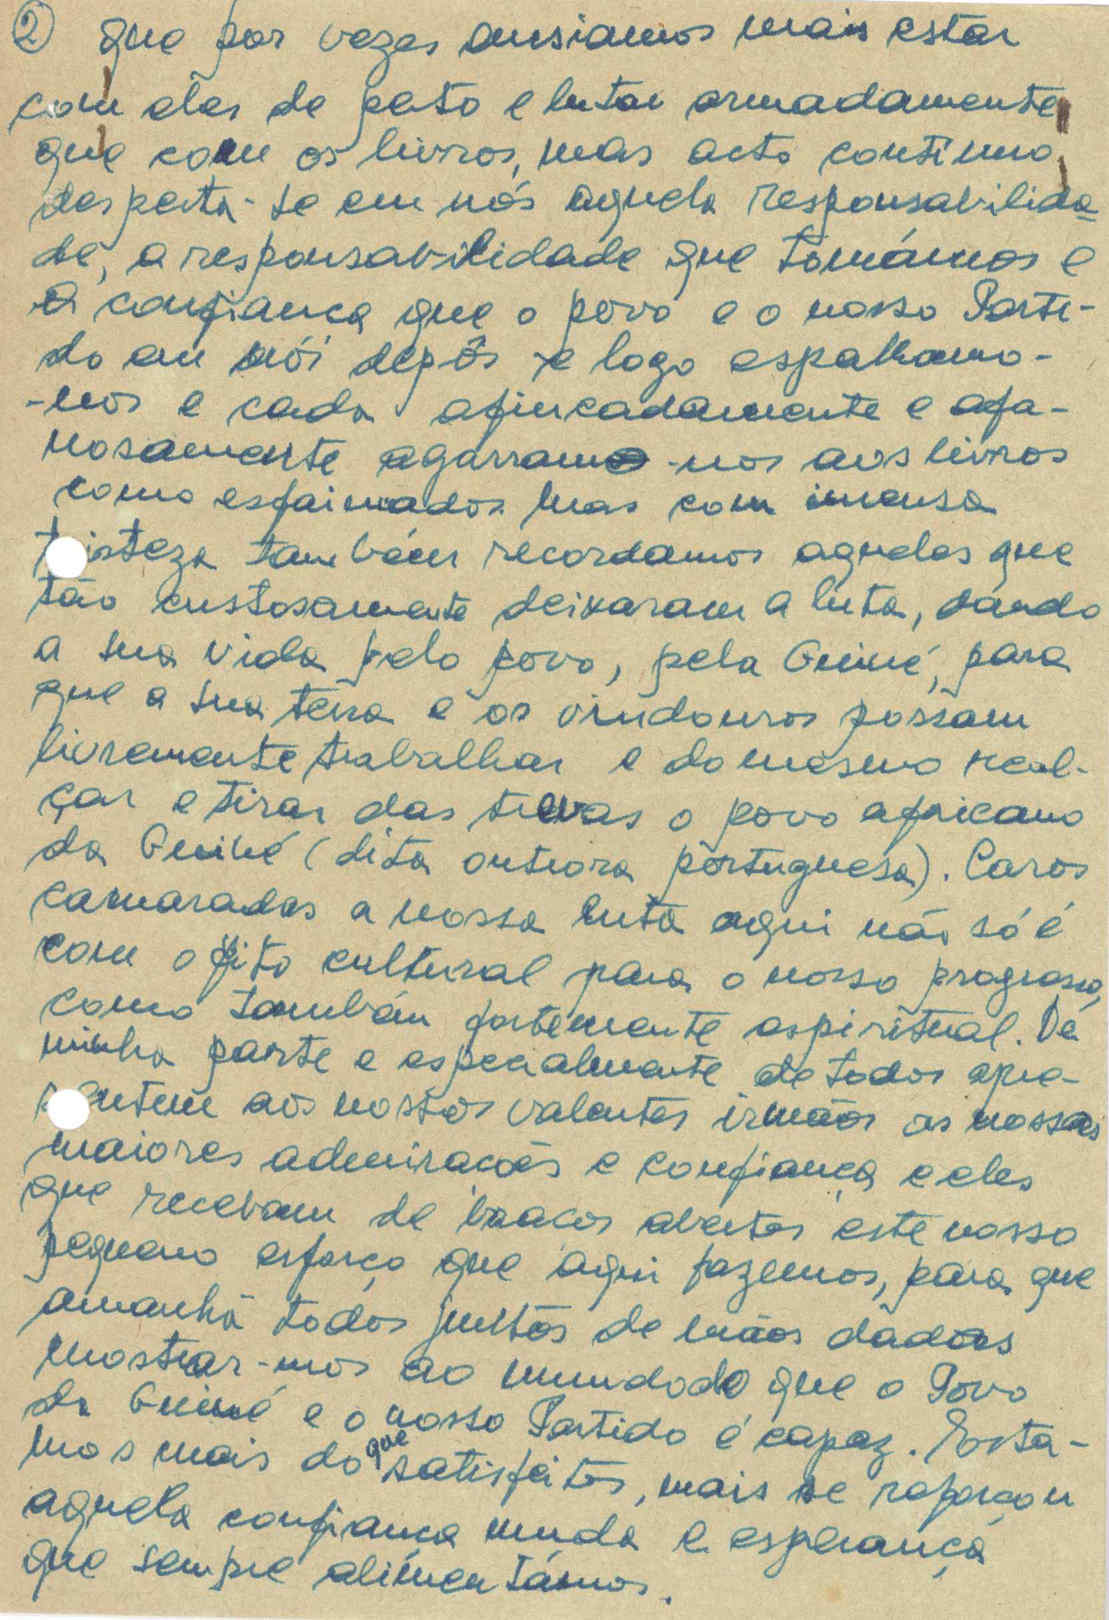 ② que por vezes ansiamos mais estar
com eles de perto e lutar armadamente
que com os livros, mas acto contínuo
desperta-se em nós aquela responsabilida-
de, a responsabilidade que tomámos e
a confiança que o povo e o nosso Parti-
do em nói depôs e logo espalhamo-
-nos e cada afincadamente e afa-
nosamente agarramo-nos aos livros
como esfaimados. Mas com imensa
tristeza também recordamos aqueles que
tão custosamente deixaram a luta, dando
a sua vida pelo povo, pela Guiné, para
que a sua terra e os vindouros possam
livremente trabalhar e do mesmo real-
çar e tirar das trevas o povo africano
da Guiné (dita outrora portuguesa). Caros
camaradas a nossa luta aqui não só é
com o fito cultural para o nosso progresso,
como também fortemente espiritual. Da
minha parte e especialmente de todos apre-
sentem aos nossos valentes irmãos as nossas
maiores admirações e confiança e eles
que recebam de braços abertos este nosso
pequeno esforço que aqui fazemos, para que
amanhã todos juntos de mãos dadas
mostrar-mos ao mundo do que o Povo
da Guiné e o nosso Partido é capaz. Esta-
mos mais do que satisfeitos, mais se reforçou
aquela confiança muda e esperança
que sempre alimentámos.